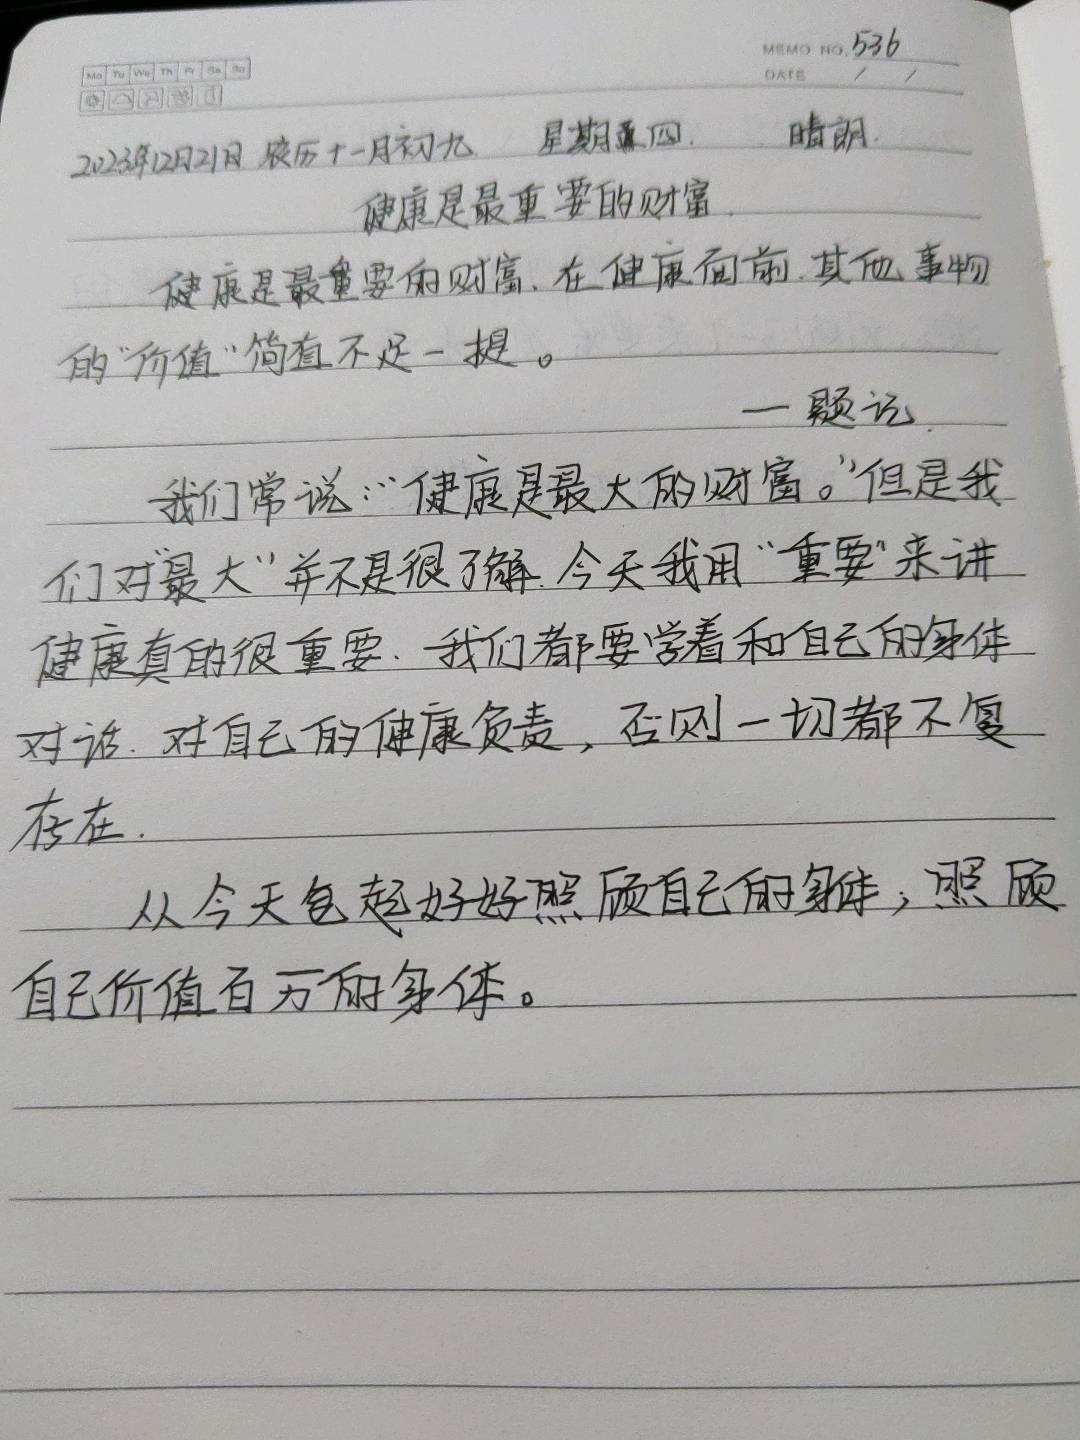 MEMO NO. 536
Mo Tu We Th Fr Sa Su
DATE / /
2023年12月21日 农历十一月初九 星期四. 晴朗.
健康是最重要的财富.
健康是最重要的财富.在健康面前.其他事物
的“价值”简直不足一提。
—题记.
我们常说:“健康是最大的财富。”但是我
们对“最大”并不是很了解.今天我用“重要”来讲
健康真的很重要.我们都要学着和自己的身体
对话.对自己的健康负责,否则一切都不复
存在.
从今天起好好照顾自己的身体;照顾
自己价值百万的身体。